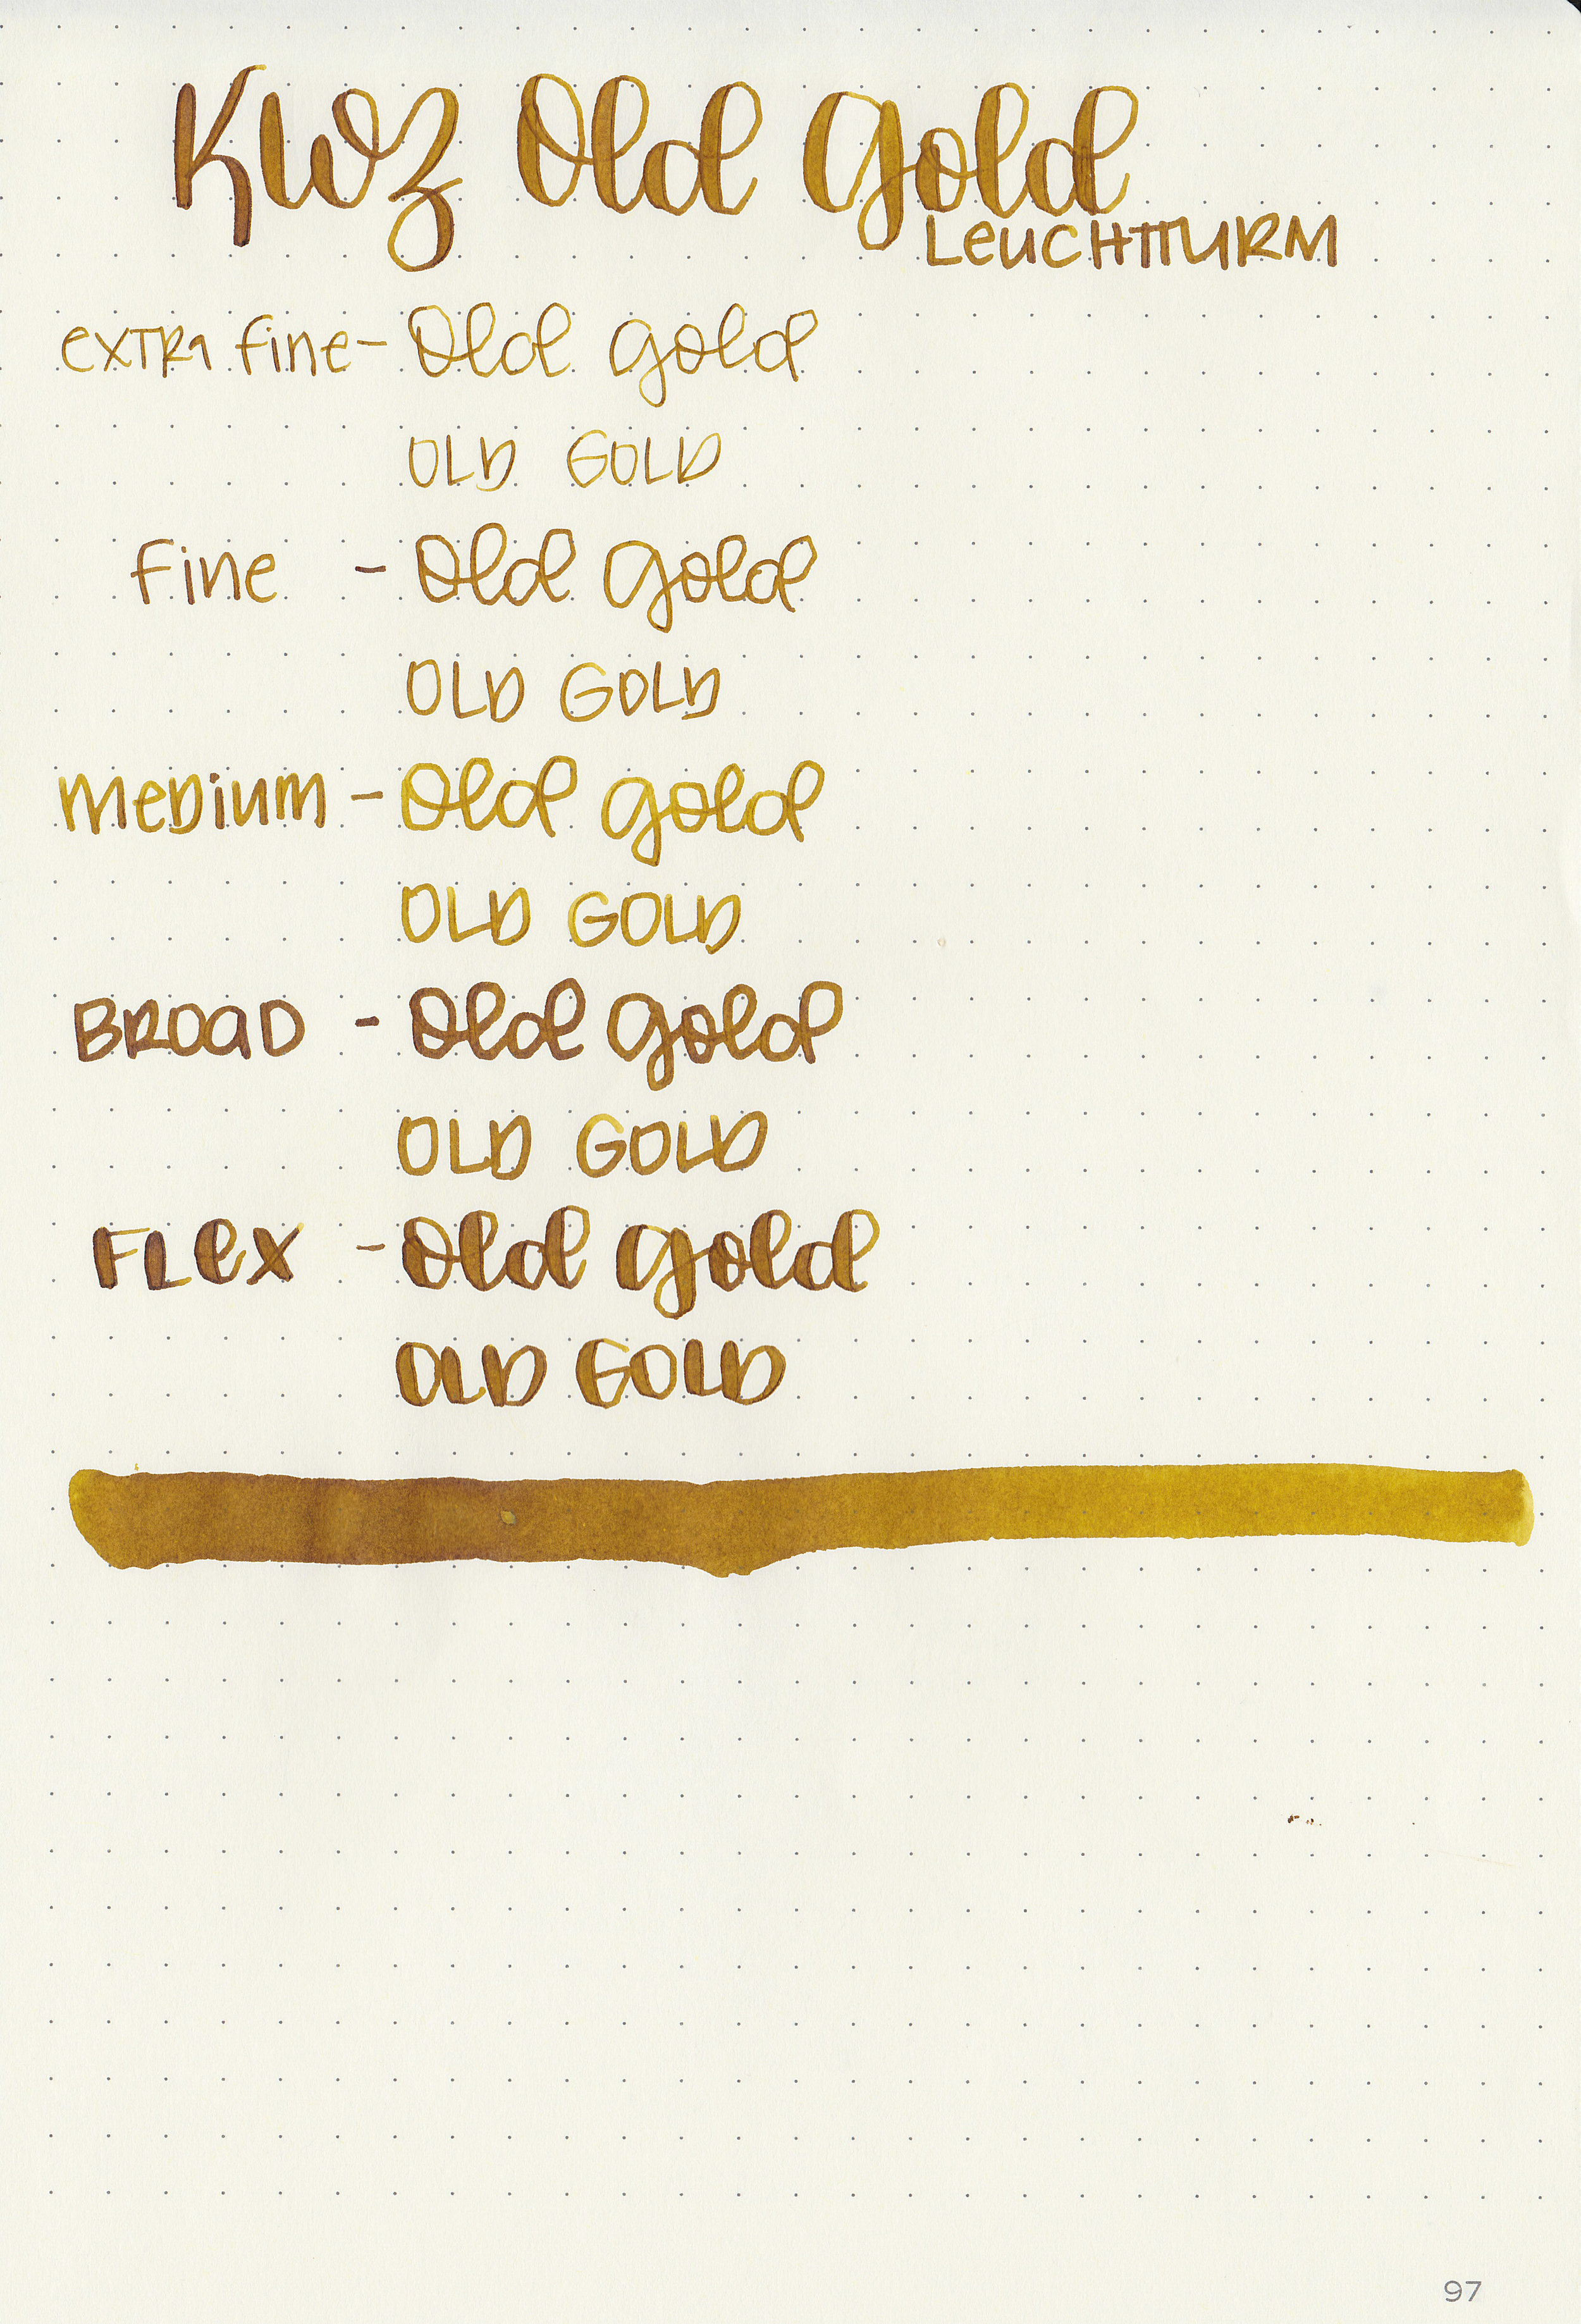 KWZ Old Gold
LEUCHTTURM
extra fine - Old Gold
OLD GOLD
fine - Old Gold
OLD GOLD
MeDium - Old Gold
OLD GOLD
BROAD - Old Gold
OLD GOLD
FLex - Old Gold
OLD GOLD
97